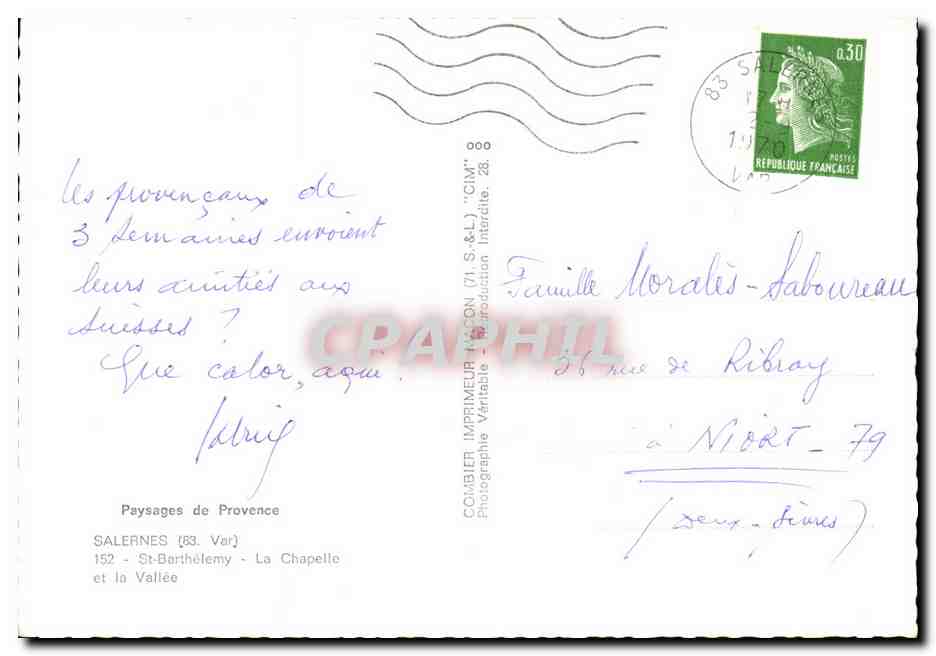 les provençaux de
3 semaines envoient
leurs amitiés aux
suisses ?
Que calor, aqui.
Paysages de Provence
SALERNES (83. Var)
152 - St-Barthélemy - La Chapelle
et la Vallée
ooo
COMBIER IMPRIMEUR MACON (71. S.-&-L.) "CIM"
Photographie Véritable - Reproduction Interdite. 28.
CPAPHIL
83 SALERNES
17 H
1970
VAR
0,30
POSTES
REPUBLIQUE FRANÇAISE
Famille Moralès - Saboureau
26 rue de Ribray
à NIORT - 79
(Deux-Sèvres)